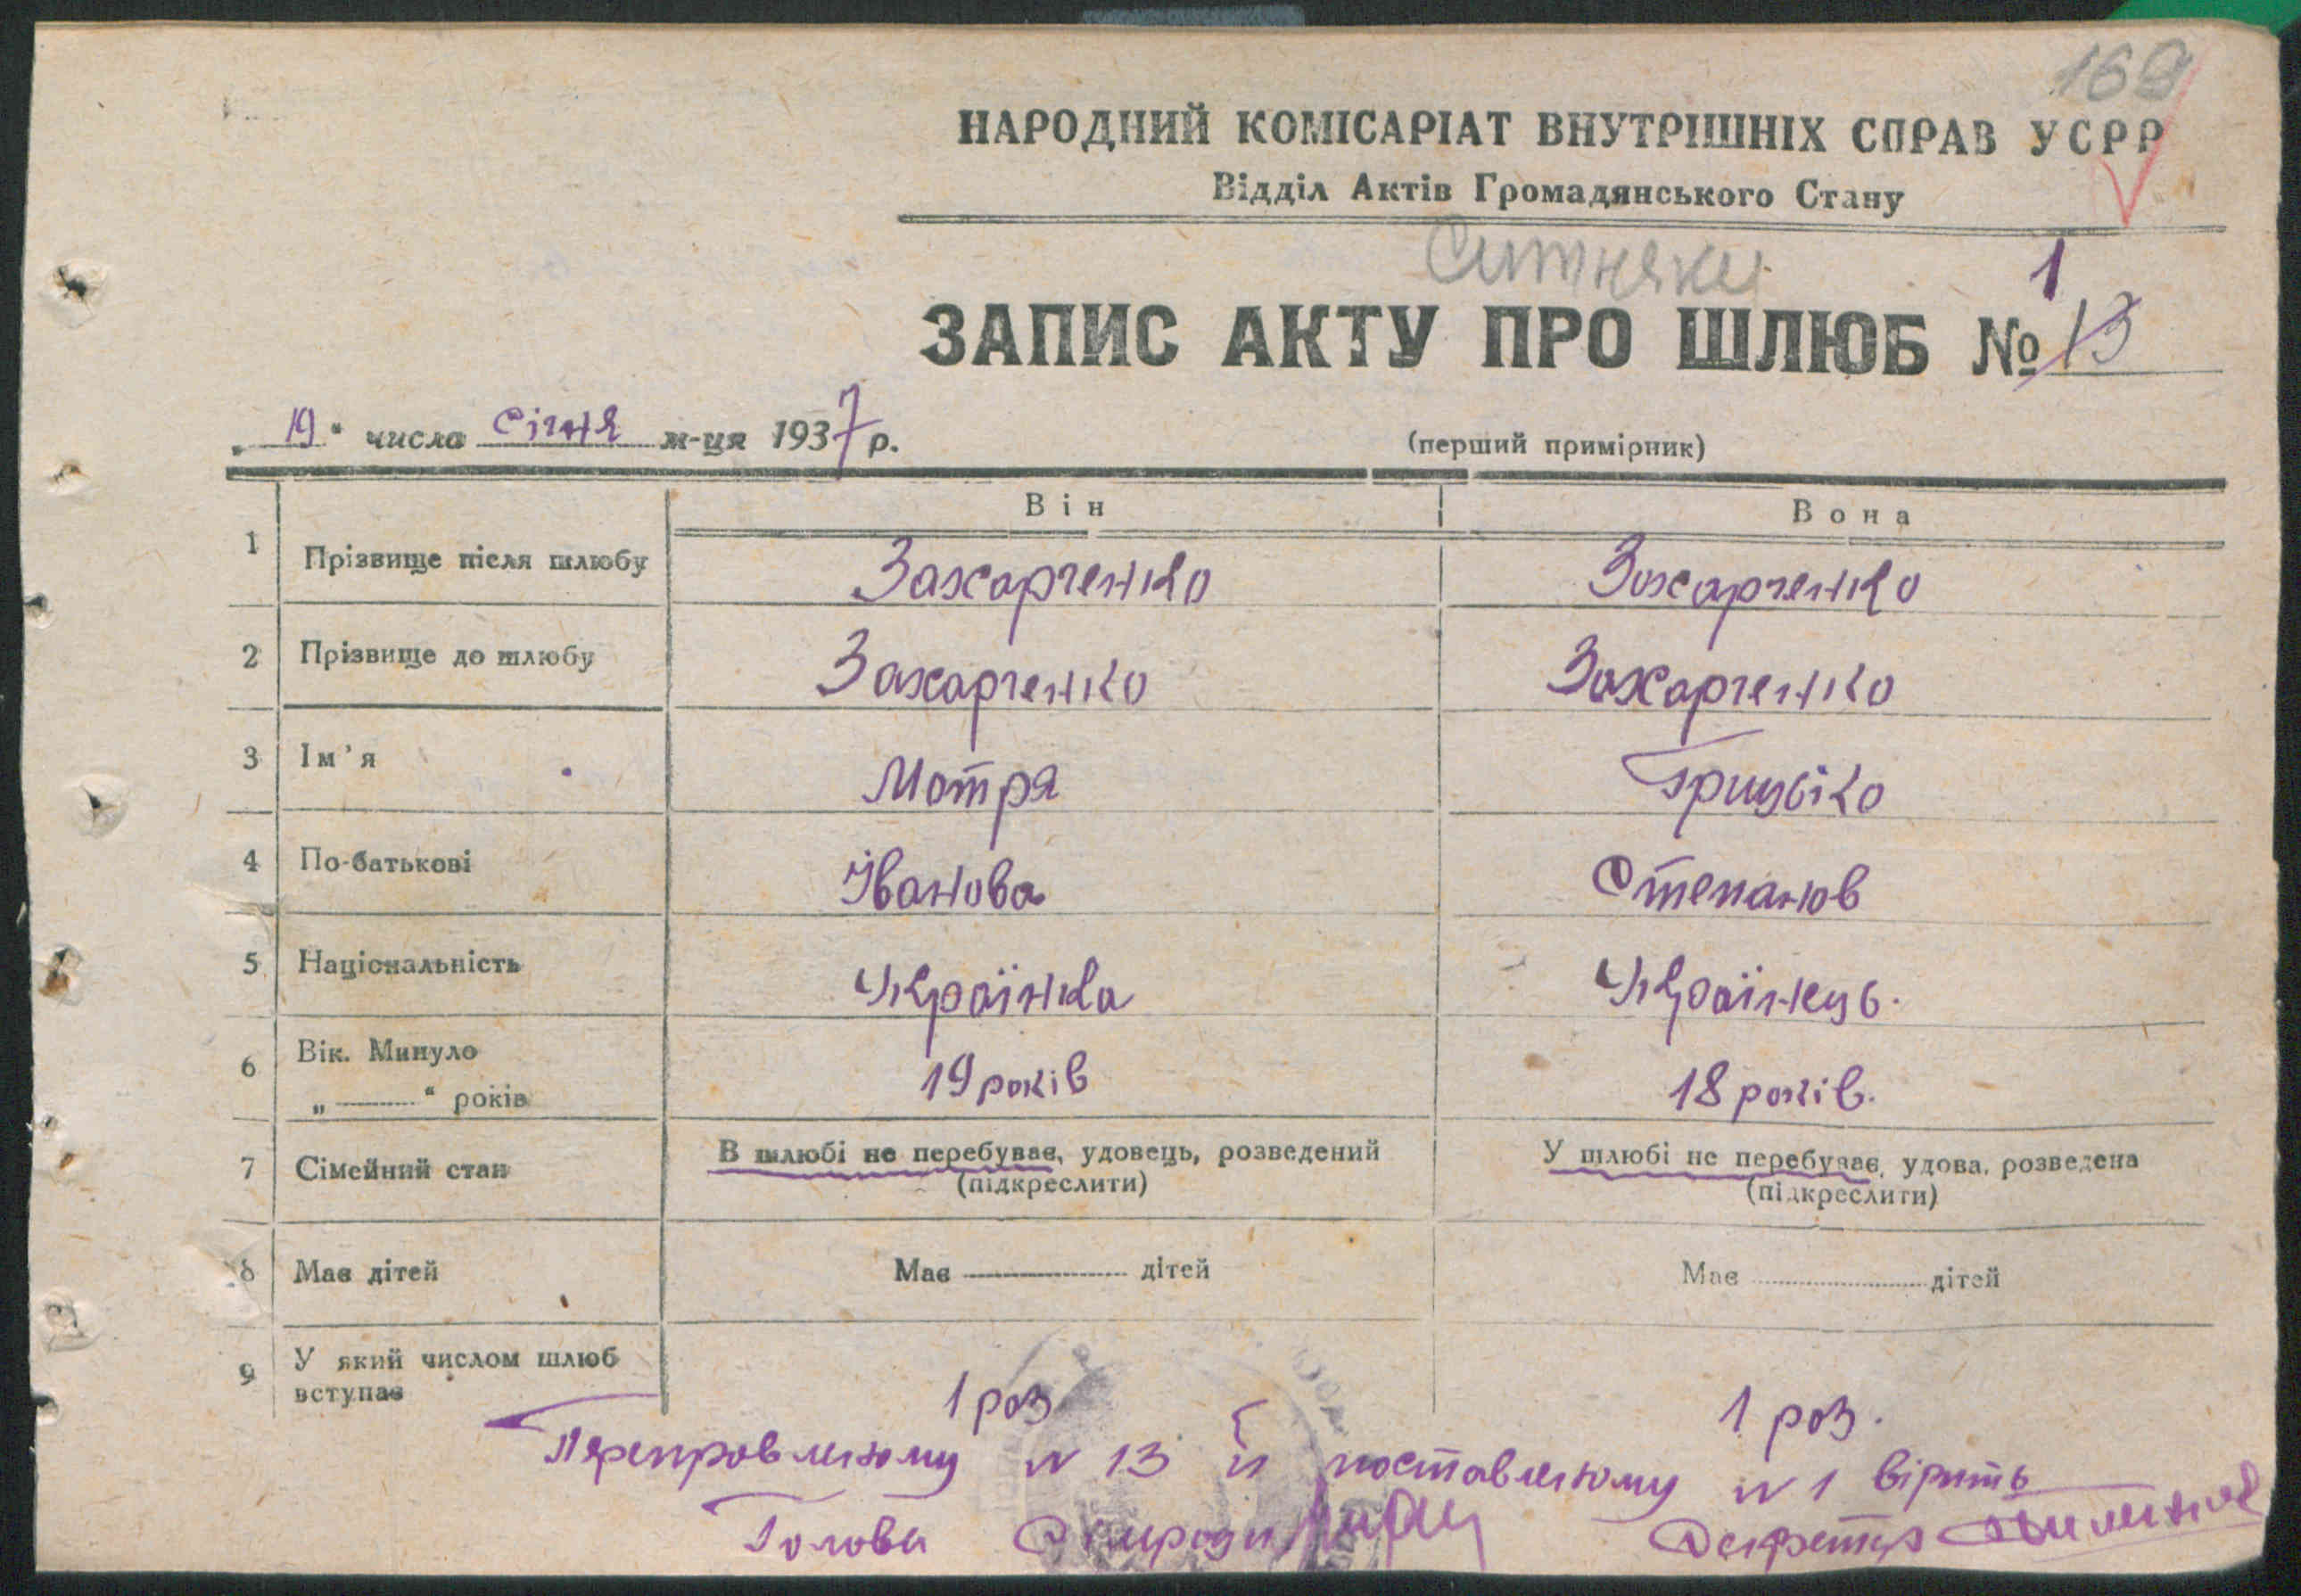 169
НАРОДНИЙ КОМІСАРІАТ ВНУТРІШНІХ СПРАВ УСРР
Відділ Актів Громадянського Стану
Ситняки
1
ЗАПИС АКТУ ПРО ШЛЮБ № 13
„19“ числа січня м-ця 1937 р. (перший примірник)
Він Вона
1 Прізвище після шлюбу Захарченко Захарченко
2 Прізвище до шлюбу Захарченко Захарченко
3 Ім'я Мотря Грицько
4 По-батькові Іванова Степанов
5 Національність Українка Українець.
6 Вік. Минуло „ “ років 19 років 18 років.
7 Сімейний стан В шлюбі не перебуває, удовець, розведений (підкреслити) У шлюбі не перебуває, удова, розведена (підкреслити)
8 Має дітей Має дітей Має дітей
9 У який числом шлюб вступає 1 раз 1 раз.
Перправленому N 13 й поставленому N 1 вірить
Голова С/ради Секретар